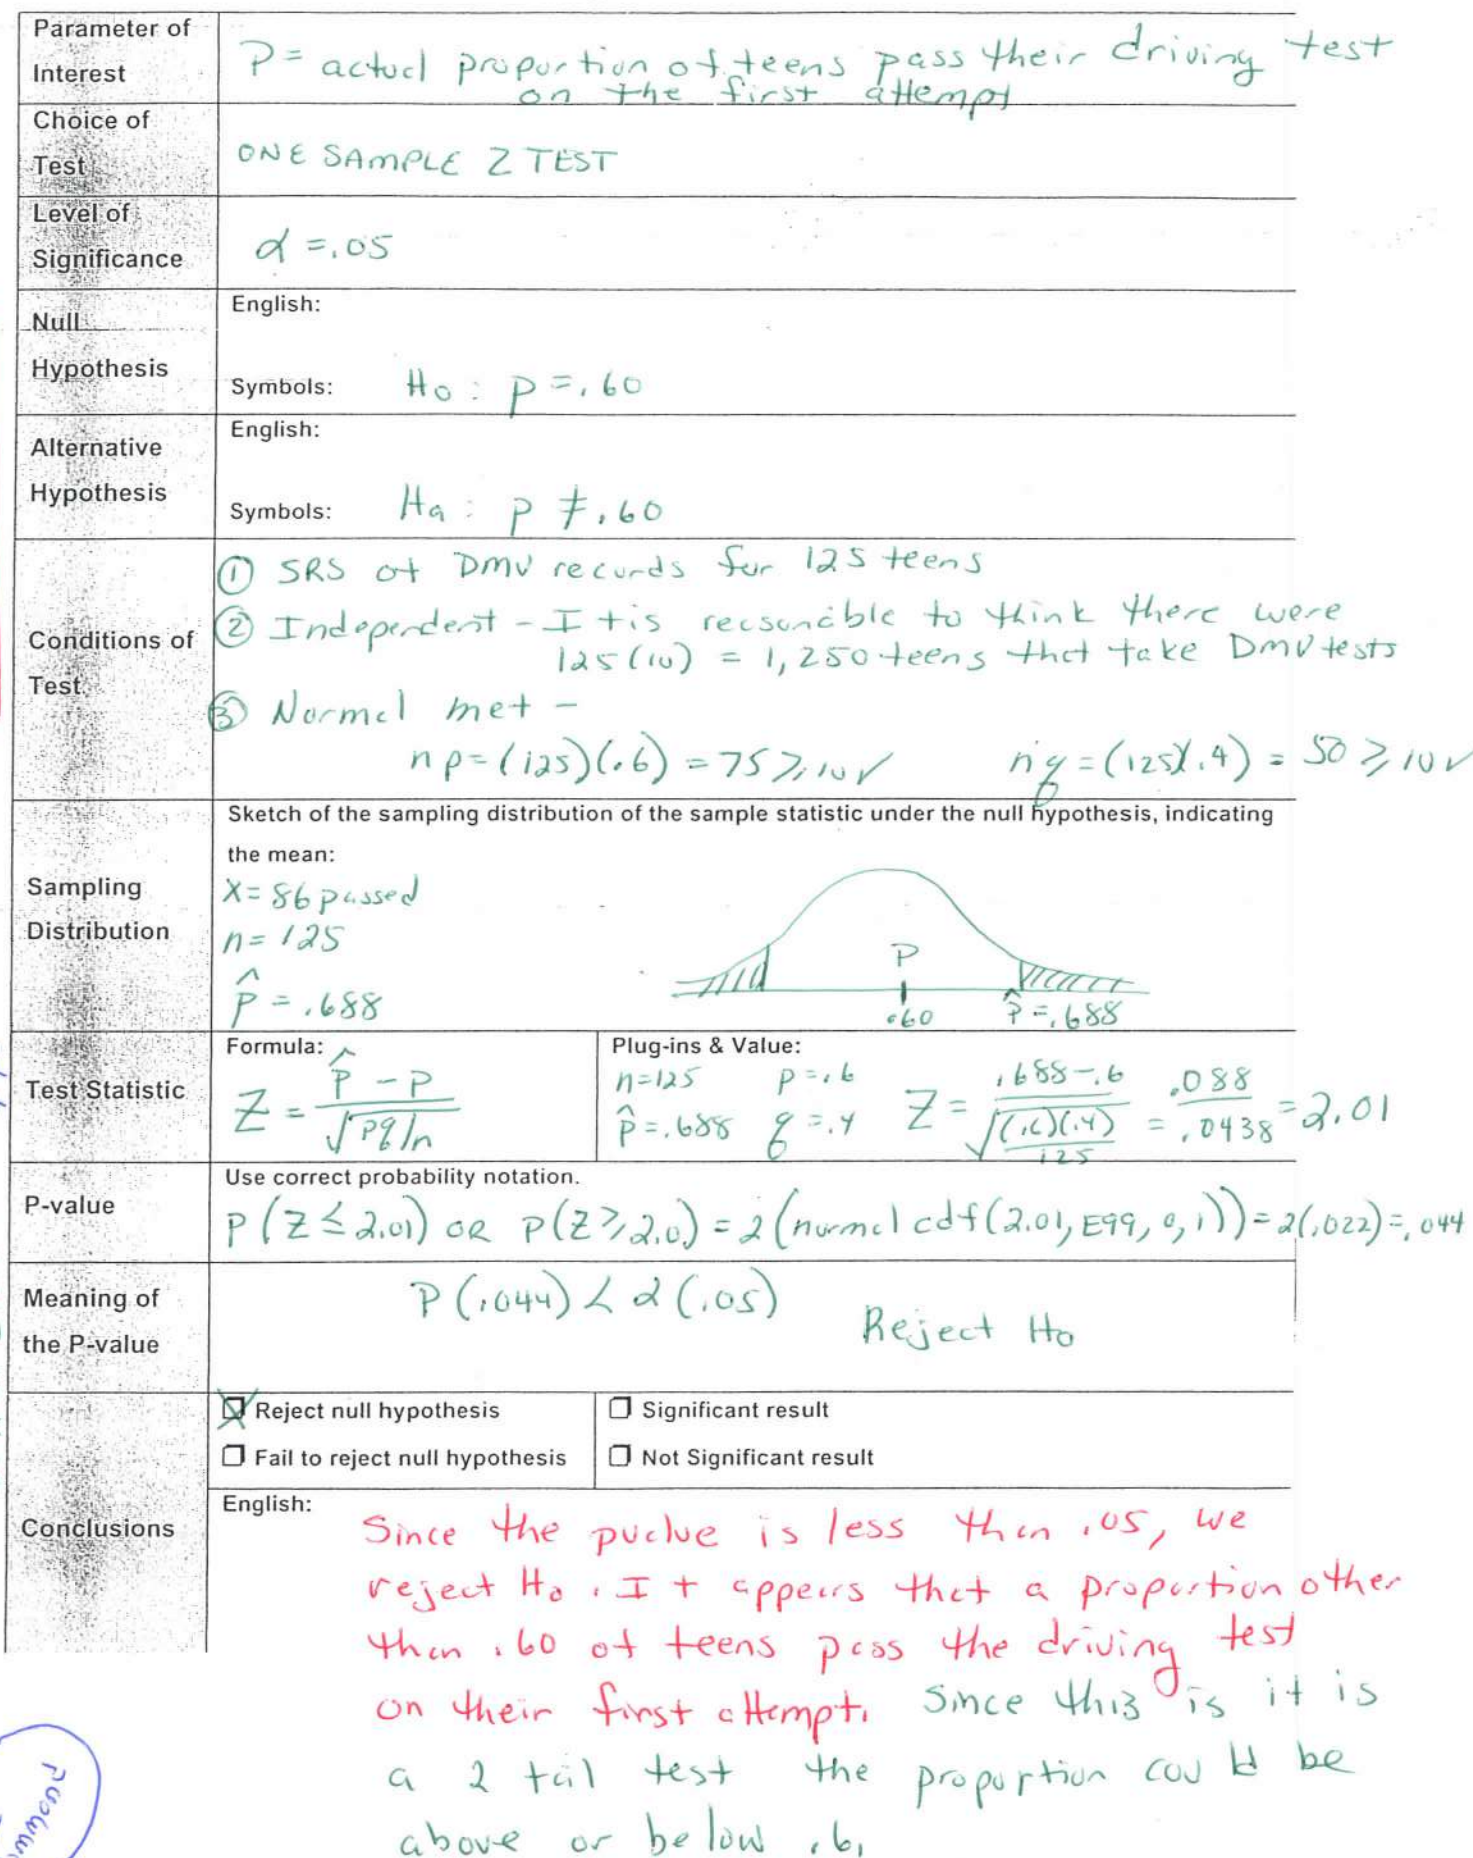 Parameter of
Interest
P = actual proportion of teens pass their driving test
on the first attempt
Choice of
Test
ONE SAMPLE Z TEST
Level of
Significance
α = .05
Null
Hypothesis
English:
Symbols: H₀ : p = .60
Alternative
Hypothesis
English:
Symbols: Hₐ : p ≠ .60
Conditions of
Test
① SRS of DMV records for 125 teens
② Independent - It is reasonable to think there were
125(10) = 1,250 teens that take DMV tests
③ Normal met -
np = (125)(.6) = 75 ≥ 10 ✓ nq = (125)(.4) = 50 ≥ 10 ✓
Sampling
Distribution
Sketch of the sampling distribution of the sample statistic under the null hypothesis, indicating
the mean:
X = 86 passed
n = 125
p̂ = .688
P
.60 p̂ = .688
Test Statistic
Formula:
Z = (p̂ - p) / √(pq/n)
Plug-ins & Value:
n = 125 p = .6
p̂ = .688 q = .4
Z = (.688 - .6) / √((.6)(.4)/125) = .088 / .0438 = 2.01
P-value
Use correct probability notation.
P(Z ≤ 2.01) OR P(Z ≥ 2.0) = 2(normal cdf(2.01, E99, 0, 1)) = 2(.022) = .044
Meaning of
the P-value
P(.044) < α(.05)
Reject H₀
Conclusions
Reject null hypothesis
Fail to reject null hypothesis
Significant result
Not Significant result
English:
Since the pvalue is less than .05, we
reject H₀. It appears that a proportion other
than .60 of teens pass the driving test
on their first attempt. Since this is it is
a 2 tail test the proportion could be
above or below .6.